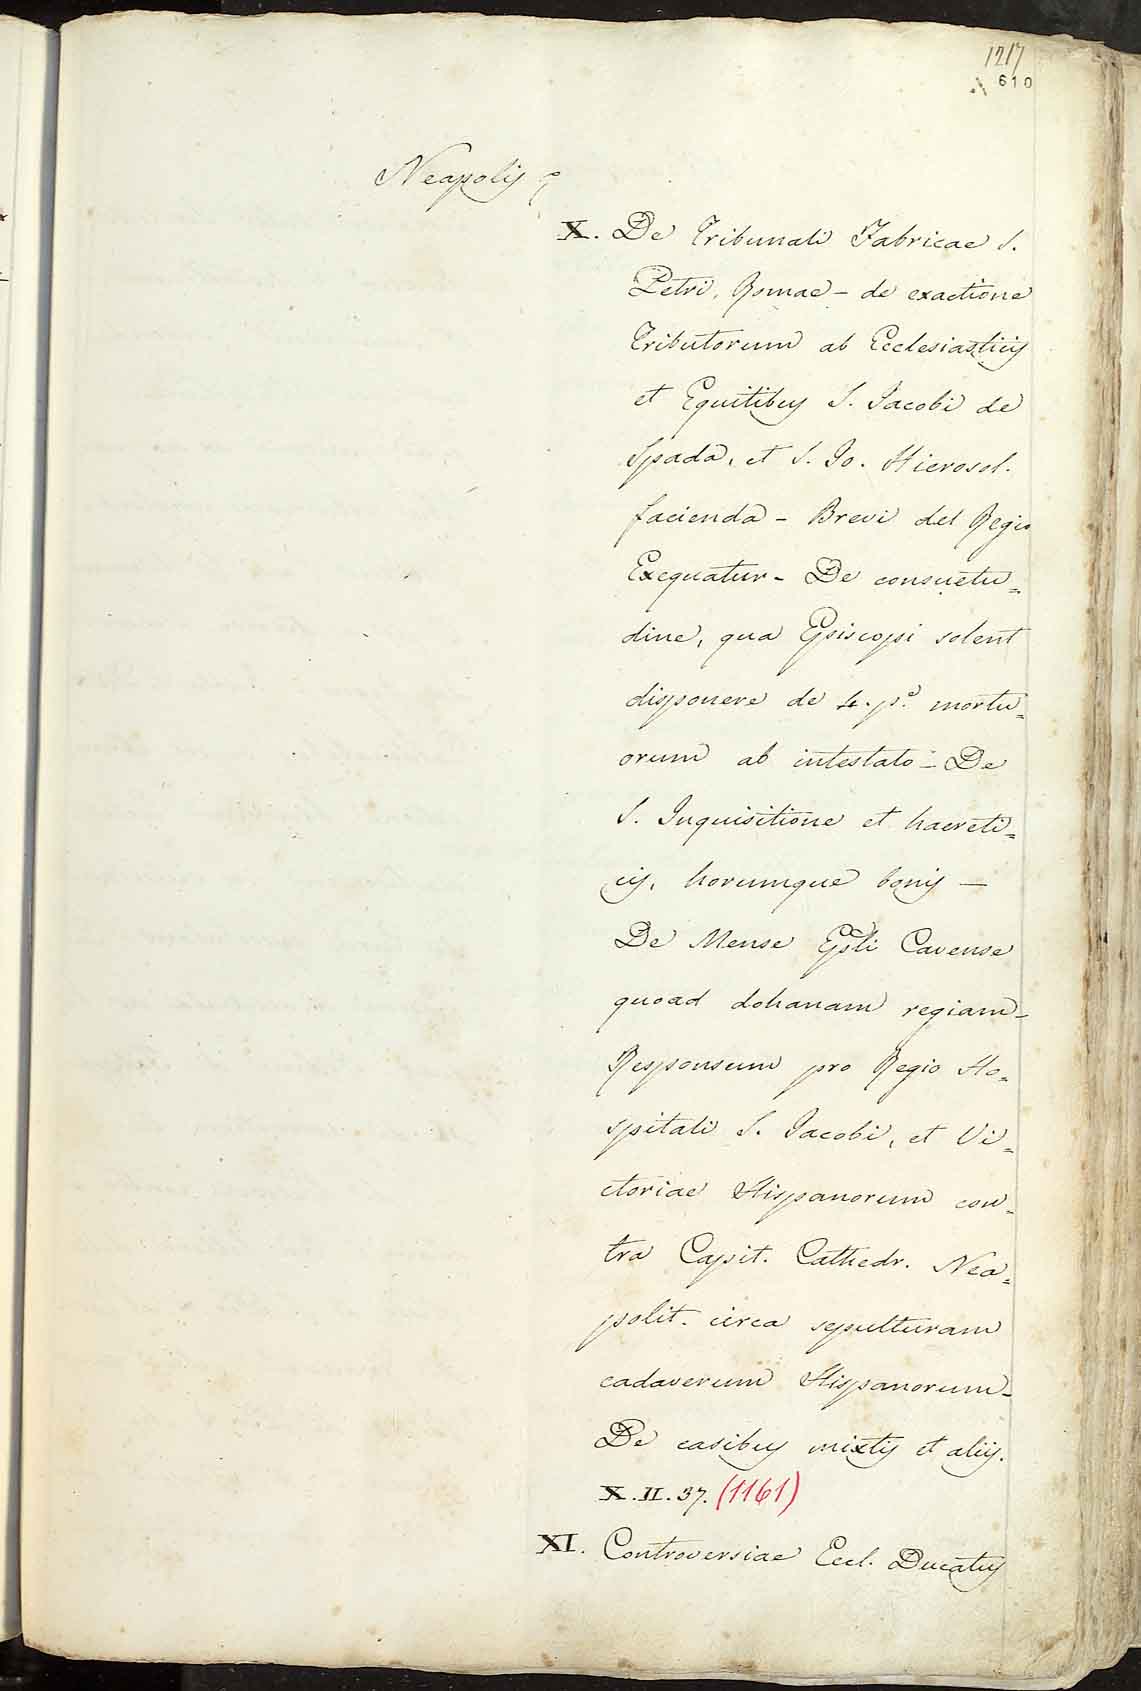 1217
610
Neapolis
X. De Tribunali Fabricae S.
Petri, Romae - de exactione
Tributorum ab Ecclesiasticis
et Equitibus S. Jacobi de
Spada, et S. Jo. Hierosol.
facienda - Brevi del Regio
Exequatur - De consuetu=
dine, qua Episcopi solent
disponere de 4. p.e mortu=
orum ab intestato - De
S. Inquisitione et haereti=
cis, horumque bonis -
De Mense Epli Cavense
quoad dohanam regiam -
Responsum pro Regio Ho=
spitali S. Jacobi, et Vi=
ctoriae Hispanorum con=
tra Capit. Cathedr. Nea=
polit. circa sepulturam
cadaverum Hispanorum -
De casibus mixtis et aliis.
X. II. 37. (1161)
XI. Controversiae Eccl. Ducatus